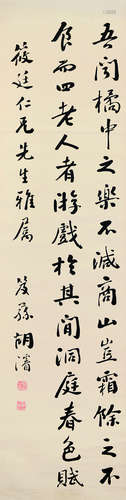 吾聞橘中之樂不減商山豈霜餘之不
食而四老人者游戲於其間洞庭春色賦
筱廷仁兄先生雅屬
胡濬